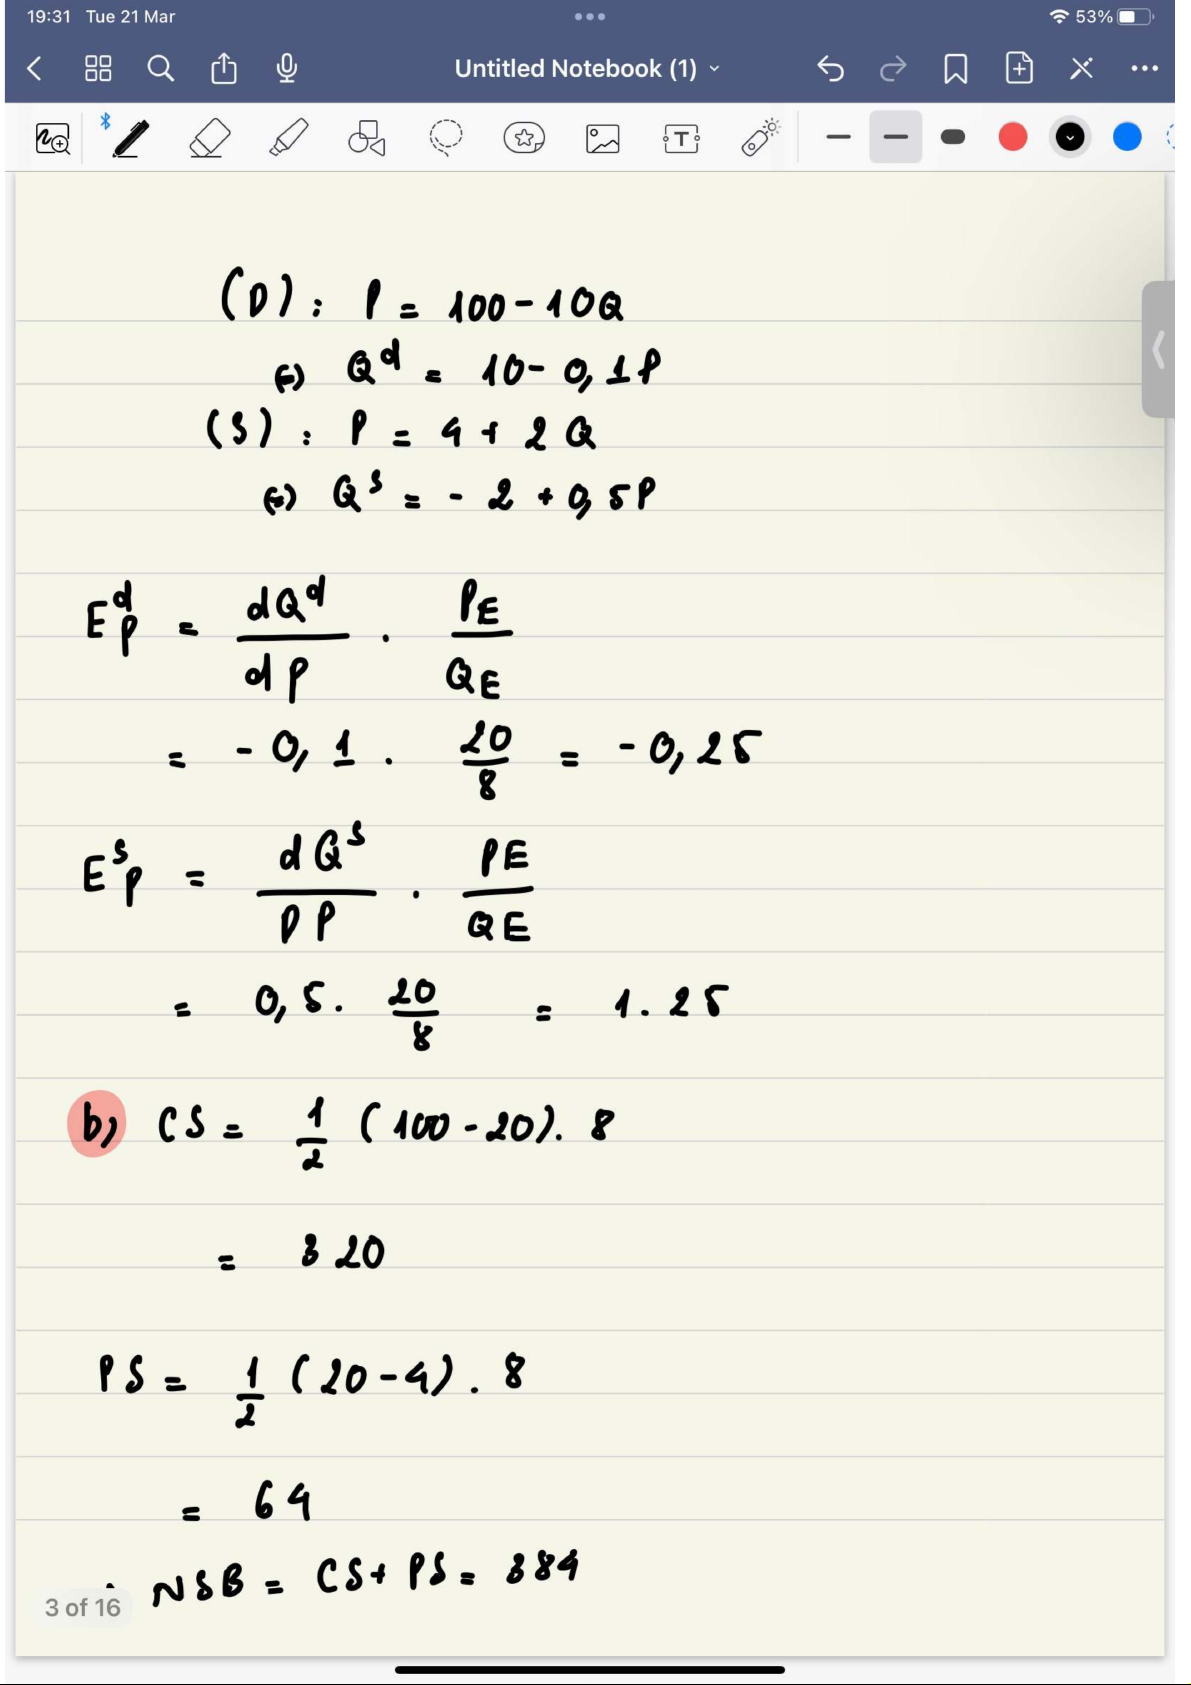 19:31 Tue 21 Mar
53%
Untitled Notebook (1)
(D): P = 100 - 10Q
(=) Qᵈ = 10 - 0,1P
(S): P = 4 + 2Q
(=) Qˢ = - 2 + 0,5P
Eᵈp = dQᵈ/dP . PE/QE
= - 0,1 . 20/8 = - 0,25
Eˢp = dQˢ/DP . PE/QE
= 0,5 . 20/8 = 1.25
b) CS = 1/2 (100 - 20). 8
= 320
PS = 1/2 (20 - 4) . 8
= 64
NSB = CS + PS = 384
3 of 16